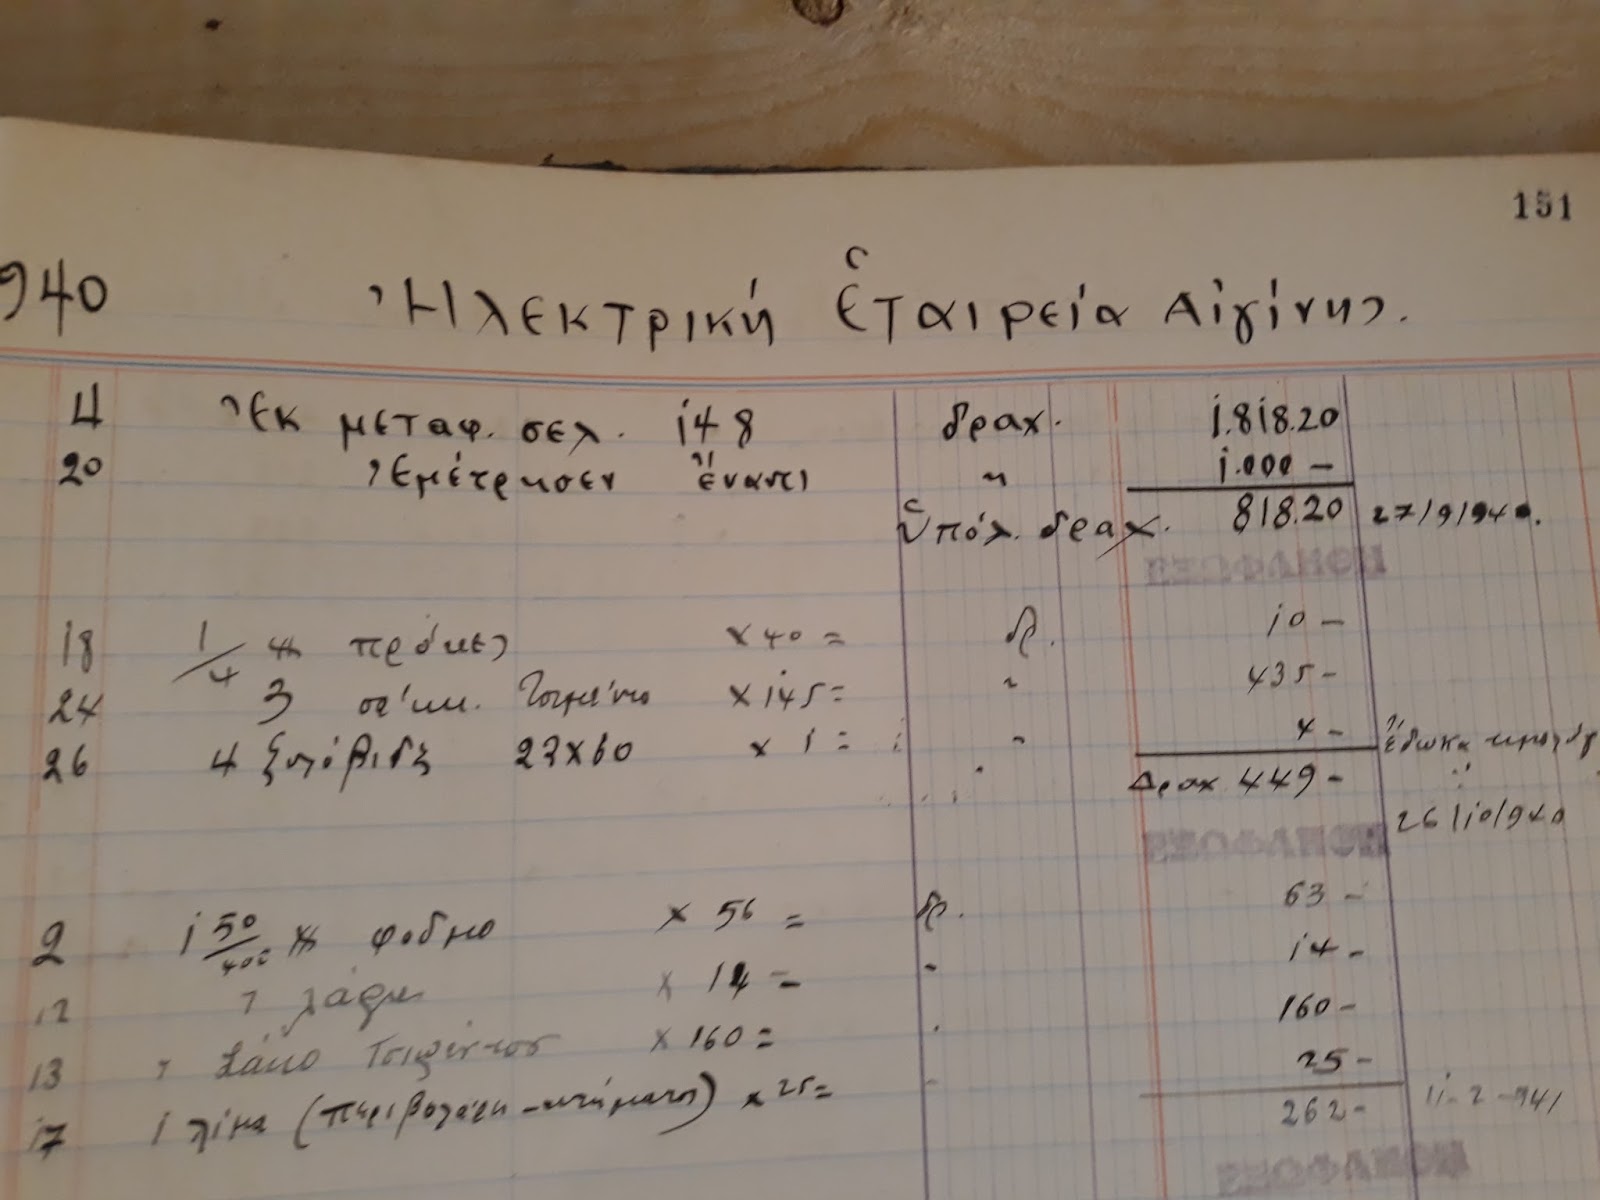 151
940 Ἠλεκτρική Ἑταιρεία Αἰγίνης.
4 Ἐκ μεταφ. σελ. 148 δραχ. 1.818.20
20 Ἐμέτρησεν ἔναντι " 1.000 —
ὑπόλ. δραχ. 818.20 27/9/940.
ΕΞΩΦΛΗΘΗ
18 1/4 πρόκες × 40 = δρ. 10 —
24 3 σάκκ. Τσιμέντο × 145 = " 435 —
26 4 ξυλόβιδες 23×60 × 1 = " 4 — ἔδωκα
Δραχ. 449 —
26/10/940
ΕΞΩΦΛΗΘΗ
2 1 50/400 × 56 = δρ. 63 —
12 1 × 14 = " 14 —
13 1 Σάκο Τσιμέντου × 160 = " 160 —
17 1 λίμα × 25 = " 25 —
262 — 11-2-941
ΕΞΩΦΛΗΘΗ